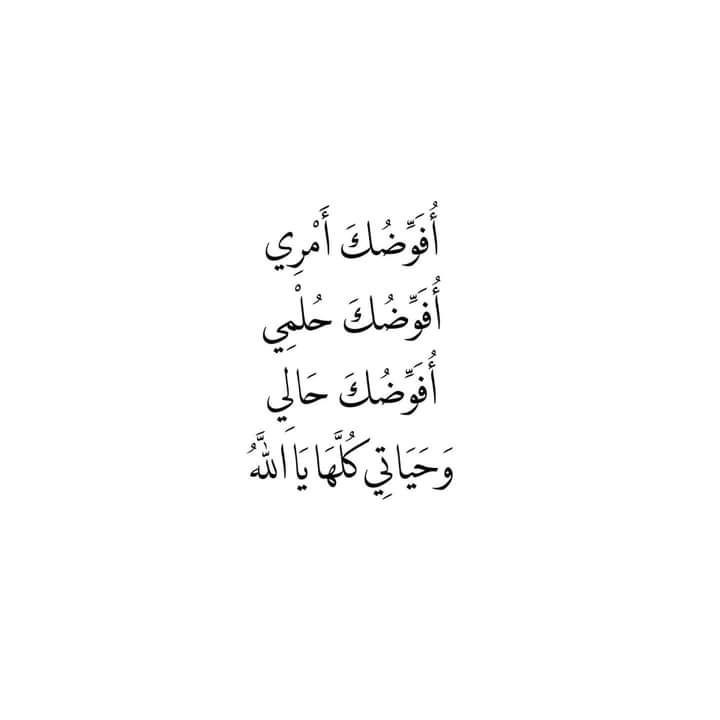 أُفَوِّضُكَ أَمْرِي
أُفَوِّضُكَ حُلْمِي
أُفَوِّضُكَ حَالِي
وَحَيَاتِي كُلَّهَا يَا اللَّهُ